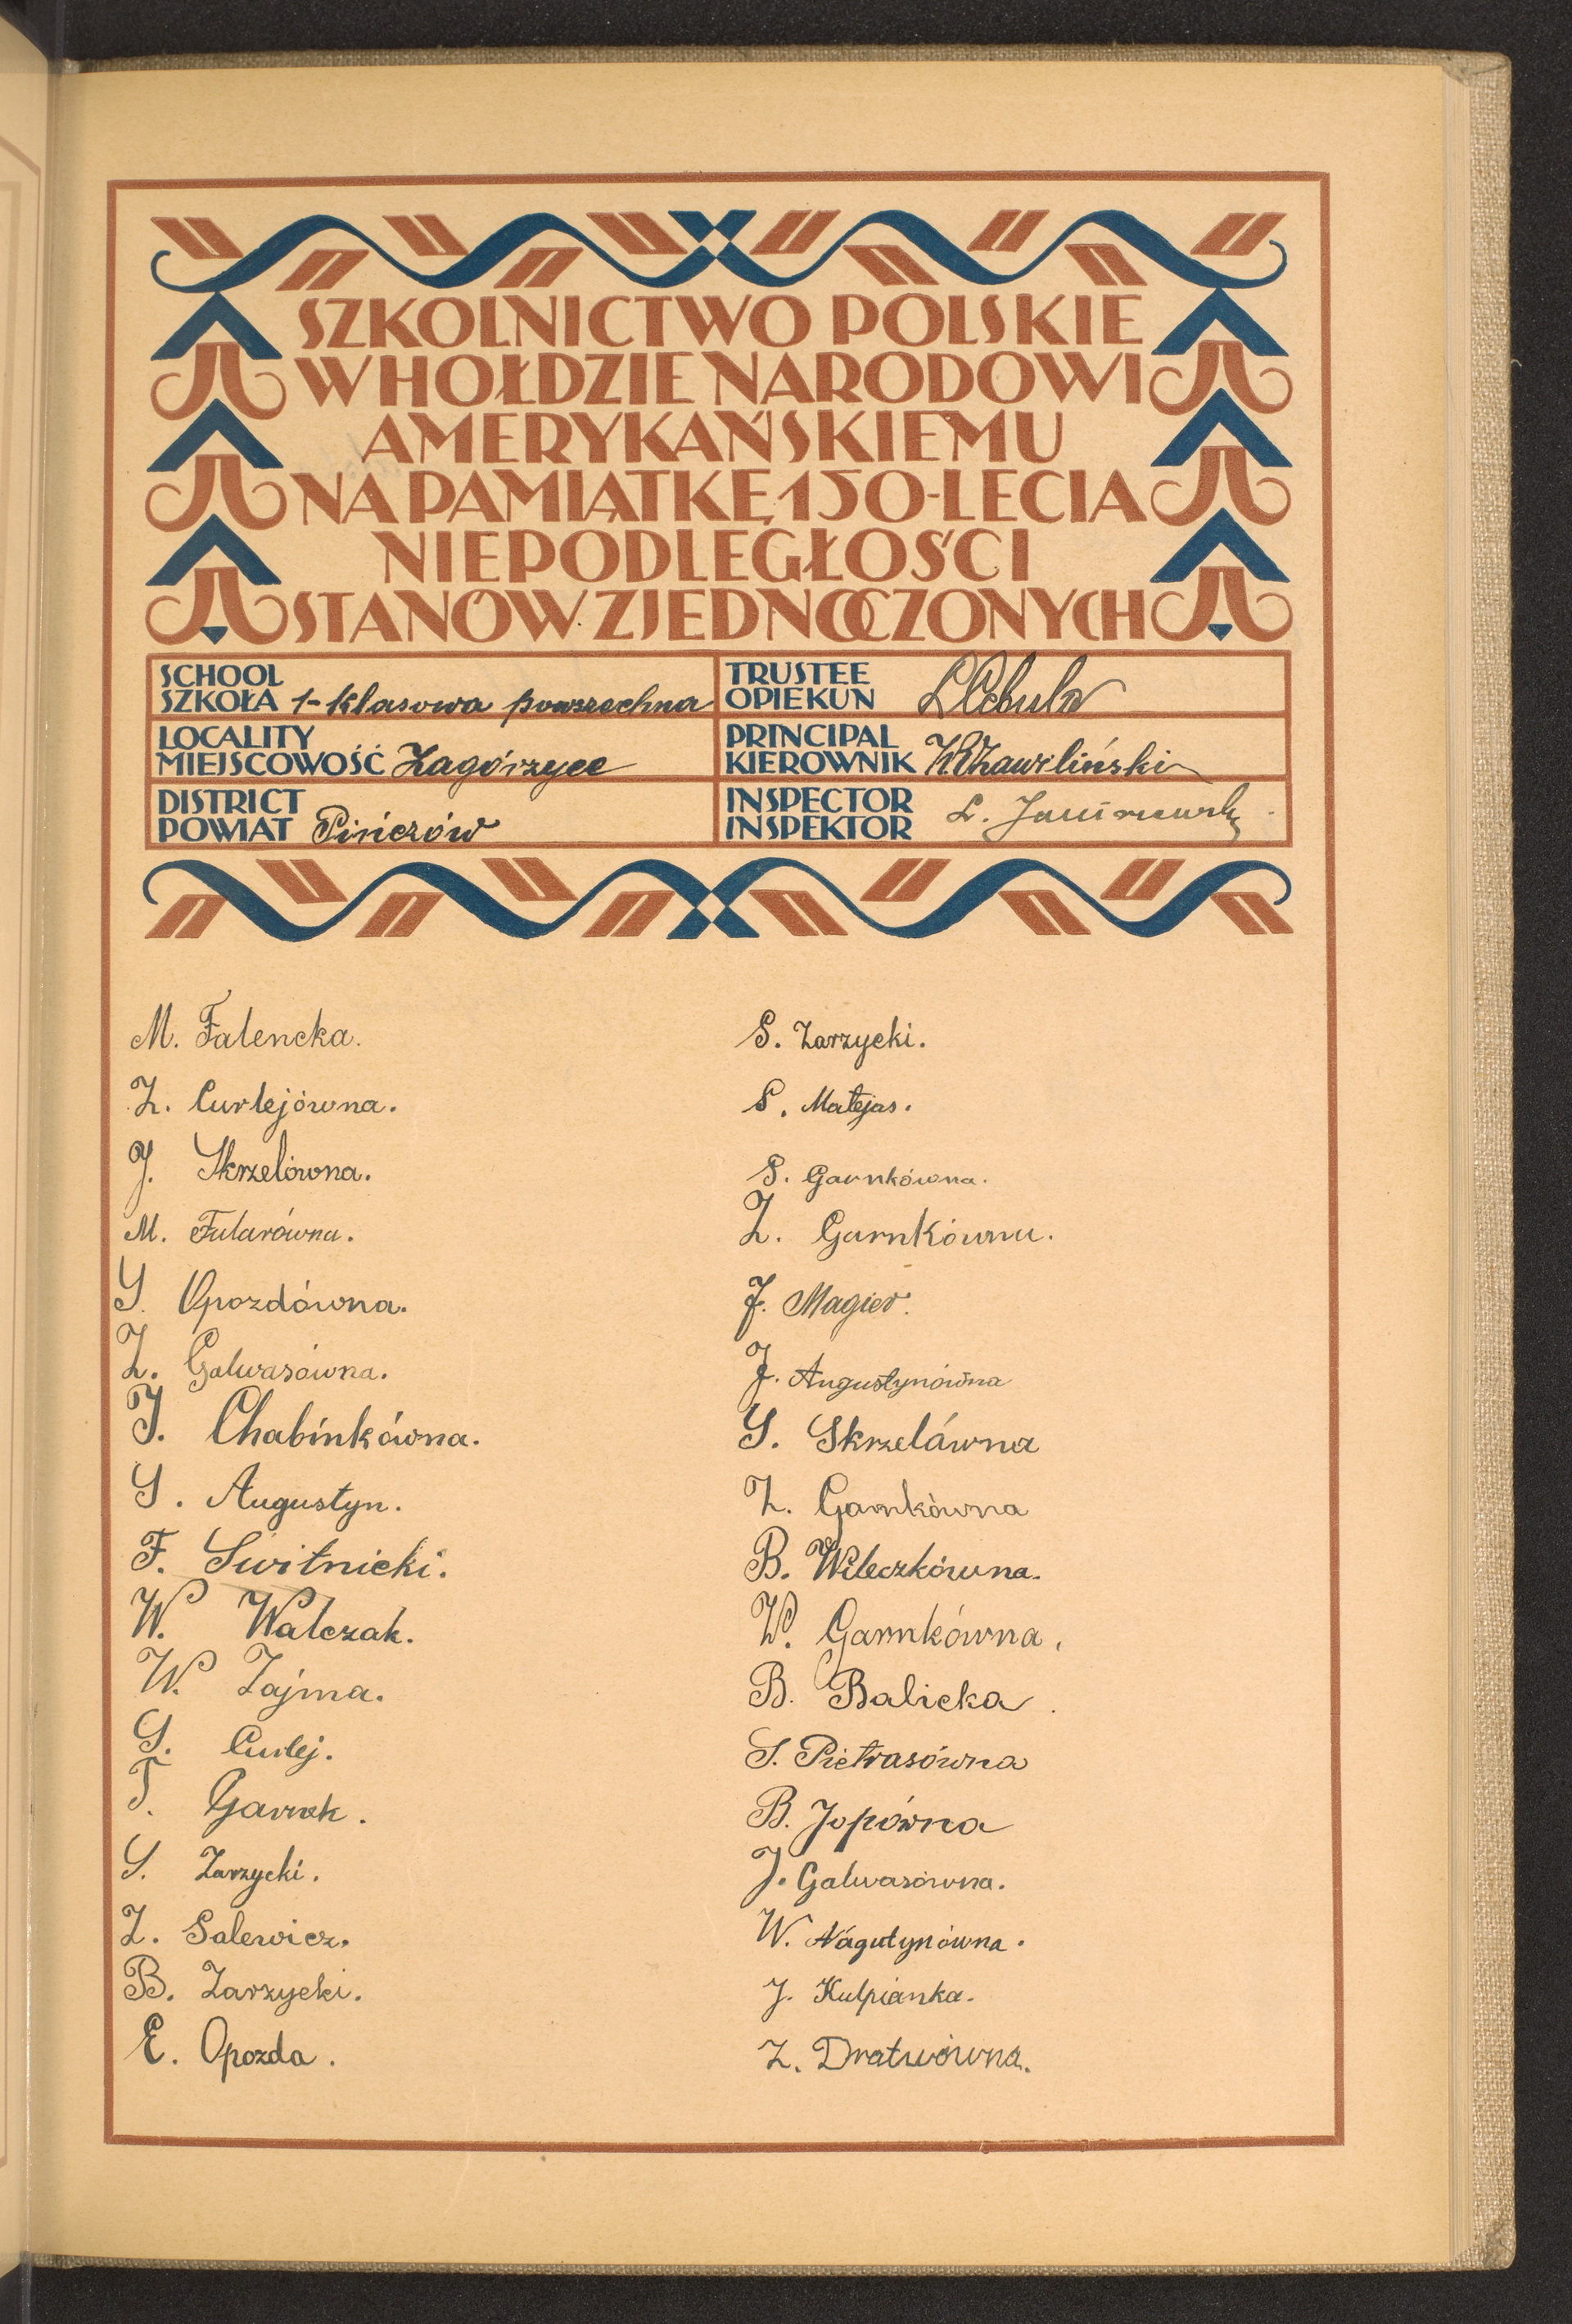 SZKOLNICTWO POLSKIE
W HOŁDZIE NARODOWI
AMERYKAŃSKIEMU
NA PAMIĄTKĘ 150-LECIA
NIEPODLEGŁOŚCI
STANÓW ZJEDNOCZONYCH
SCHOOL
SZKOŁA 1-klasowa powszechna
LOCALITY
MIEJSCOWOŚĆ Zagórzyce
DISTRICT
POWIAT Pińczów
TRUSTEE
OPIEKUN Cebula
PRINCIPAL
KIEROWNIK
INSPECTOR
INSPEKTOR L.
M. Falencka.
Z. Curlejówna.
J. Skrzelówna.
M. Fularówna.
S. Opozdówna.
Z. Galwasówna.
J. Chabinkówna.
S. Augustyn.
F. Switnicki.
W. Walczak.
W. Zajma.
S. Curlej.
T. Garnek.
S. Zarzycki.
Z. Salewicz.
B. Zarzycki.
E. Opozda.
S. Zarzycki.
S. Matejas.
S. Garnkówna.
Z. Garnkówna.
J. Magier.
J. Augustynówna
S. Skrzelówna
Z. Garnkówna
B. Wileczkówna.
W. Garnkówna.
B. Balicka.
S. Pietrasówna
B. Jopówna
J. Galwasówna.
W. Nágutynówna.
J. Kulpianka.
Z. Dratwówna.